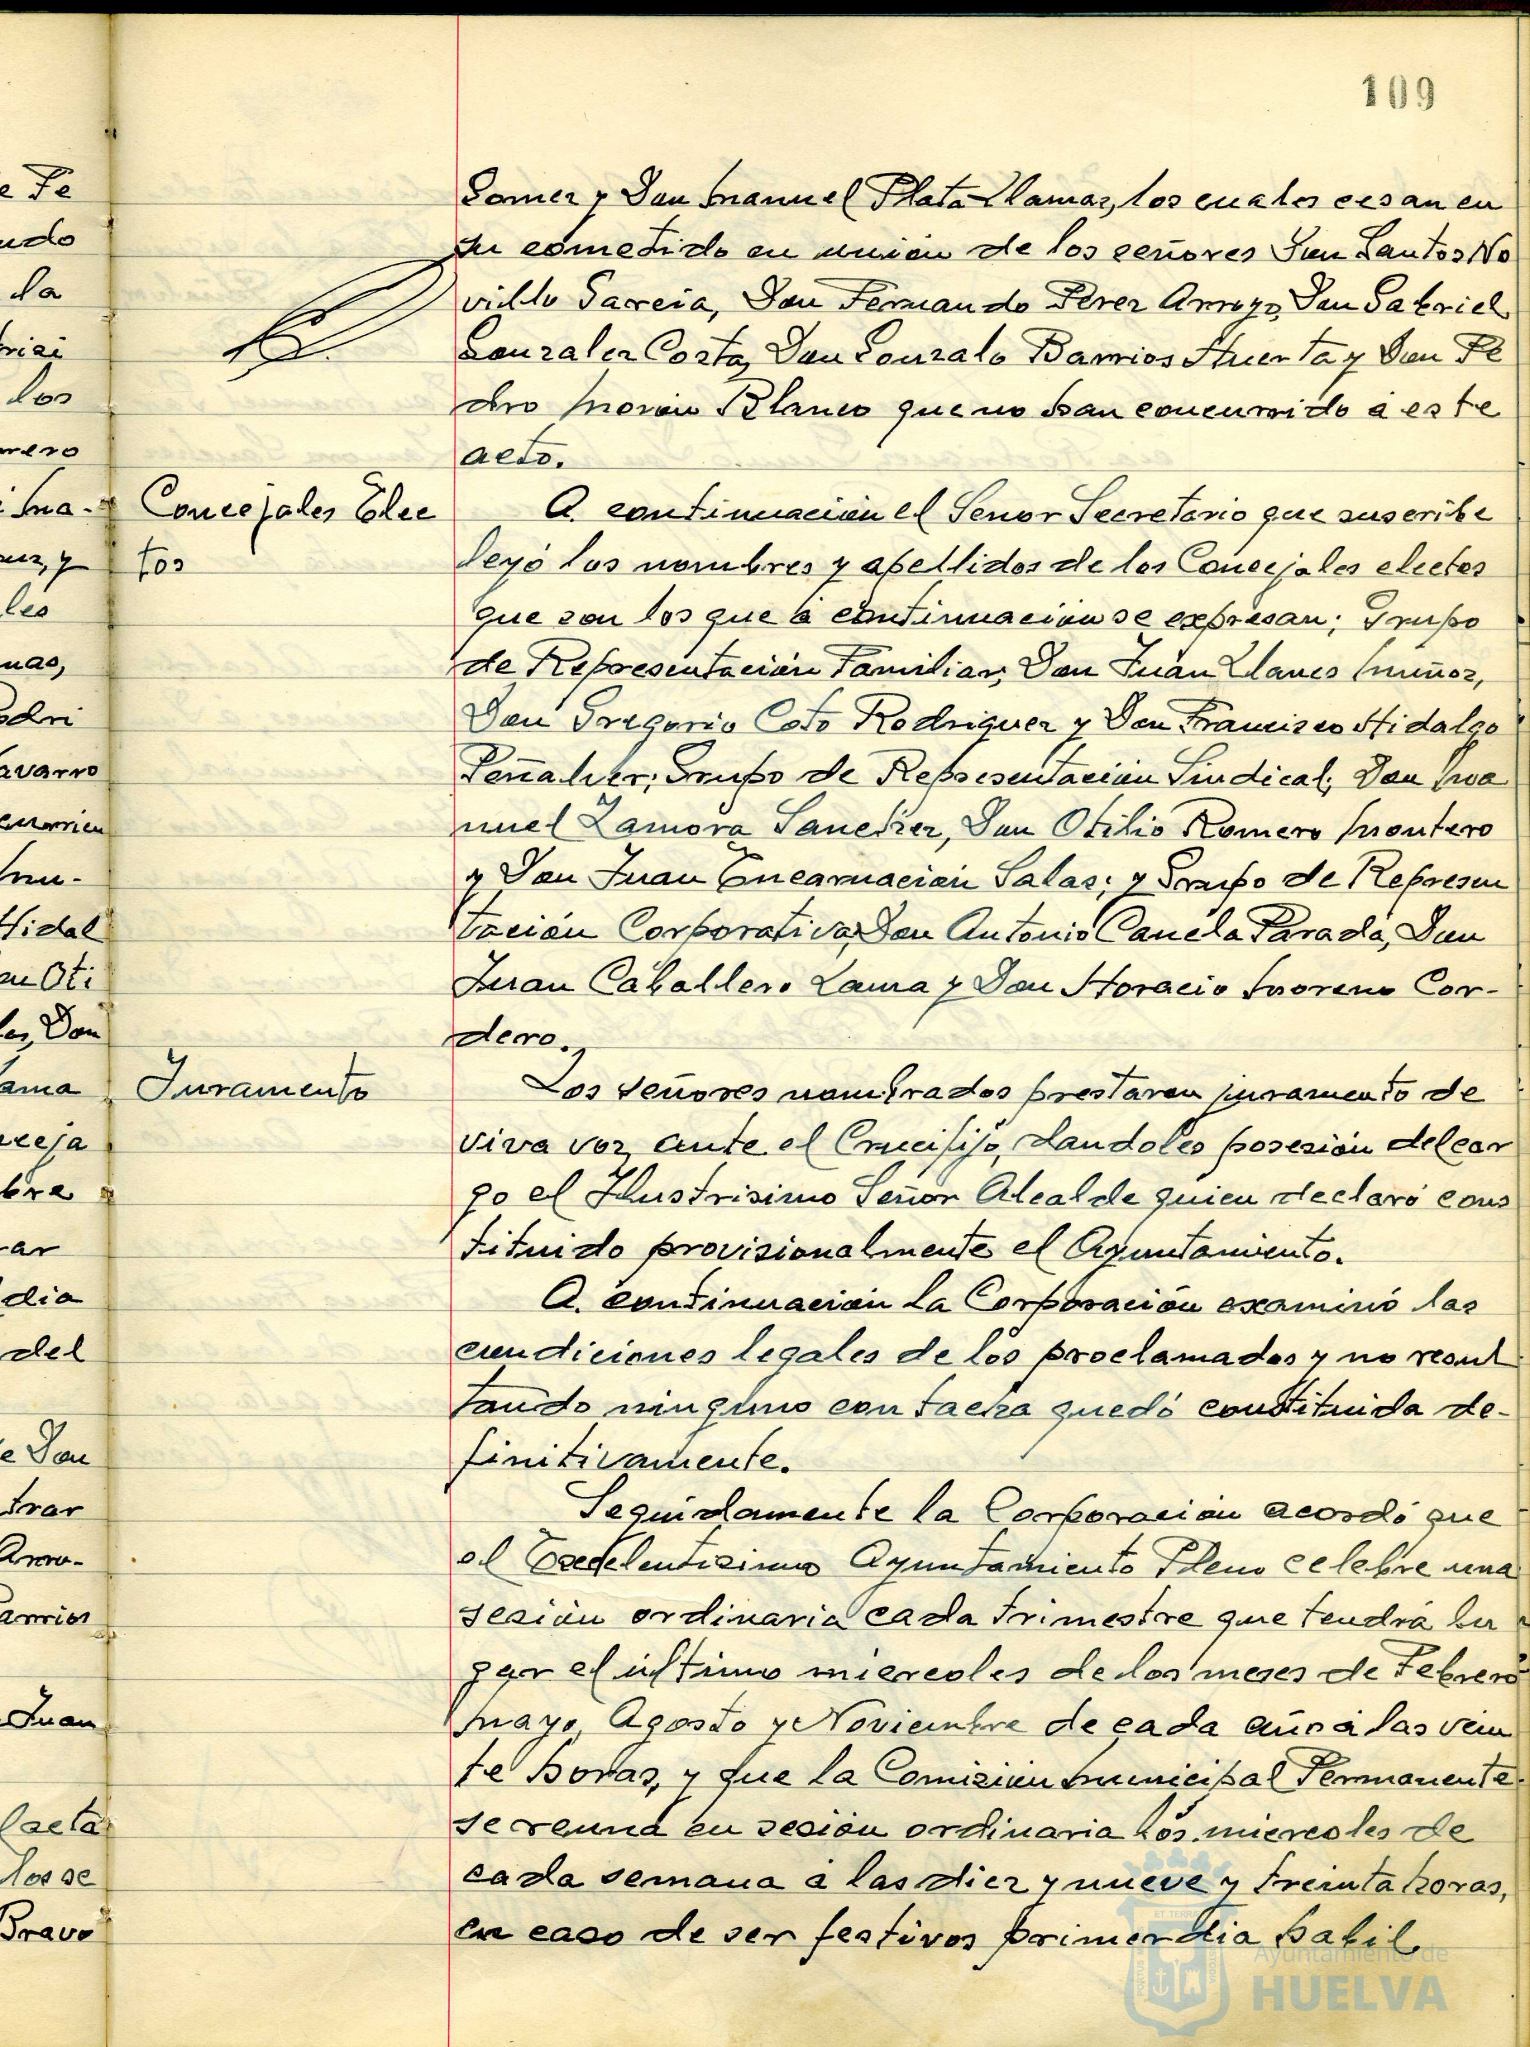 109
Gomez y Don Manuel Plata Llamas, los cuales cesan en
su cometido en unión de los señores Don Santos No
villo Garcia, Don Fernando Perez Arroyo, Don Gabriel
Gonzalez Costa, Don Gonzalo Barrios Huerta y Don Pe
dro Morón Blanco que no han concurrido á este
acto.
Concejales Elec
tos
A continuación el Señor Secretario que suscribe
leyó los nombres y apellidos de los Concejales electos
que son los que á continuación se expresan; Grupo
de Representación Familiar; Don Juan Llanes Muñoz,
Don Gregorio Coto Rodriguez y Don Francisco Hidalgo
Peñalver; Grupo de Representación Sindical; Don Ma
nuel Zamora Sanchez, Don Otilio Romero Montero
y Don Juan Encarnación Salas; y Grupo de Represen
tación Corporativa, Don Antonio Canela Parada, Don
Juan Caballero Lama y Don Horacio Moreno Cor-
dero.
Juramento
Los señores nombrados prestaron juramento de
viva voz ante el Crucifijo, dandoles posesión del car
go el Ilustrisimo Señor Alcalde quien declaró cons
tituido provisionalmente el Ayuntamiento.
A continuación la Corporación examinó las
condiciones legales de los proclamados y no resul
tando ninguno con tacha quedó constituida de-
finitivamente.
Seguidamente la Corporación acordó que
el Excelentisimo Ayuntamiento Pleno celebre una
sesión ordinaria cada trimestre que tendrá lu
gar el último miercoles de los meses de Febrero
Mayo, Agosto y Noviembre de cada año á las vein
te horas, y que la Comisión Municipal Permanente
se reuna en sesión ordinaria los miercoles de
cada semana á las diez y nueve y treinta horas,
en caso de ser festivos primer dia habil
e Pe
la
los
rero
y
les
nas,
odri
avarro
Hidal
an Oti
Don
ama
nceja
bre
rar
dia
del
e Don
trar
arrios
Juan
los se
Bravo
Ayuntamiento de
HUELVA